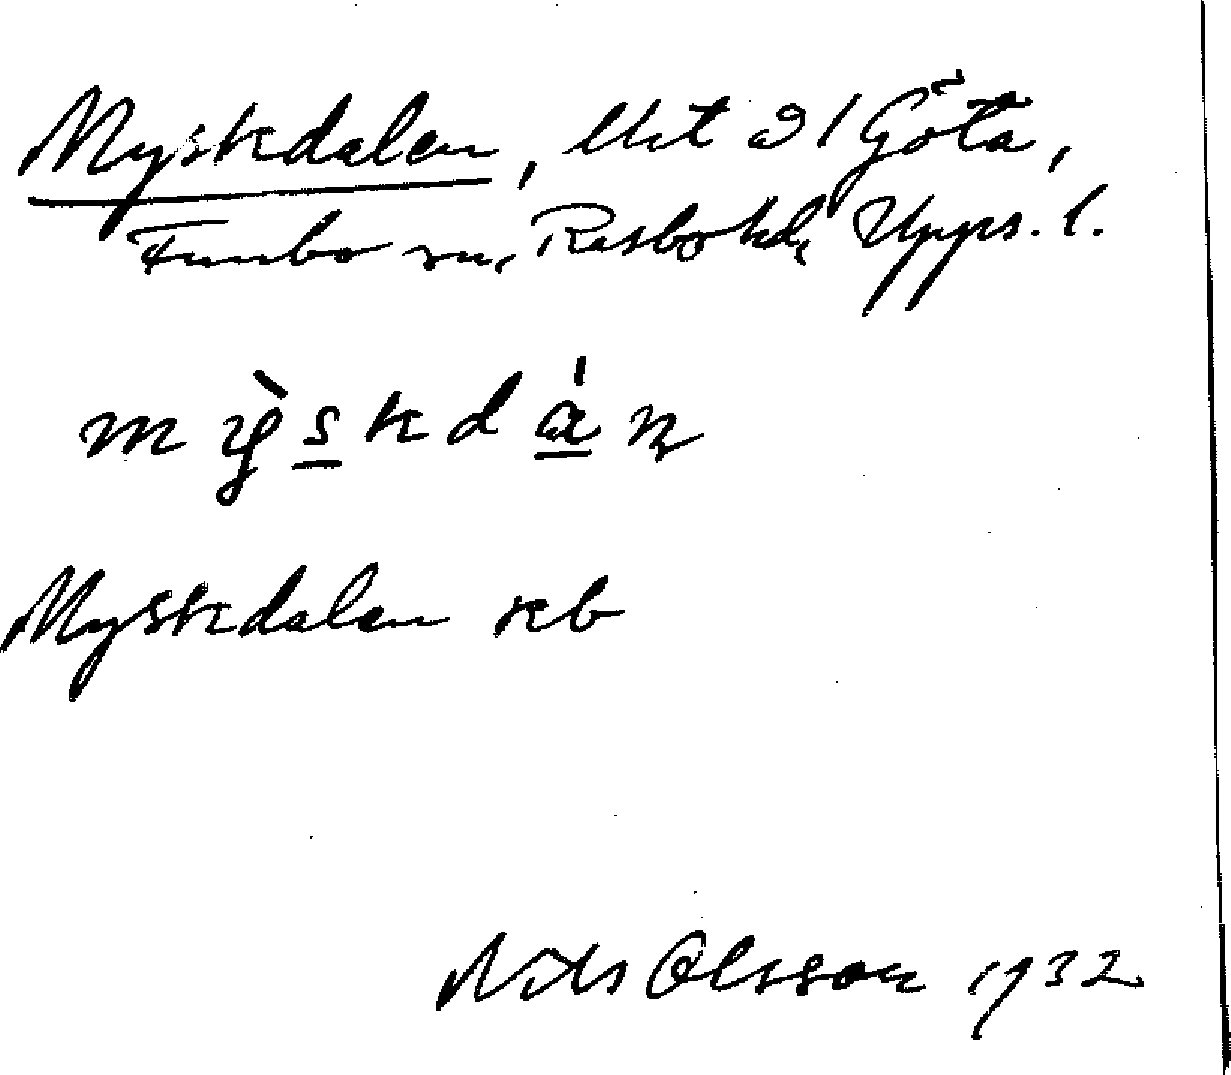 Myskdalen, lht å Göta,
Funbo sn, Rasbo hd, Upps. l.
mỳskdán
Myskdalen kb
Nils Olsson 1932